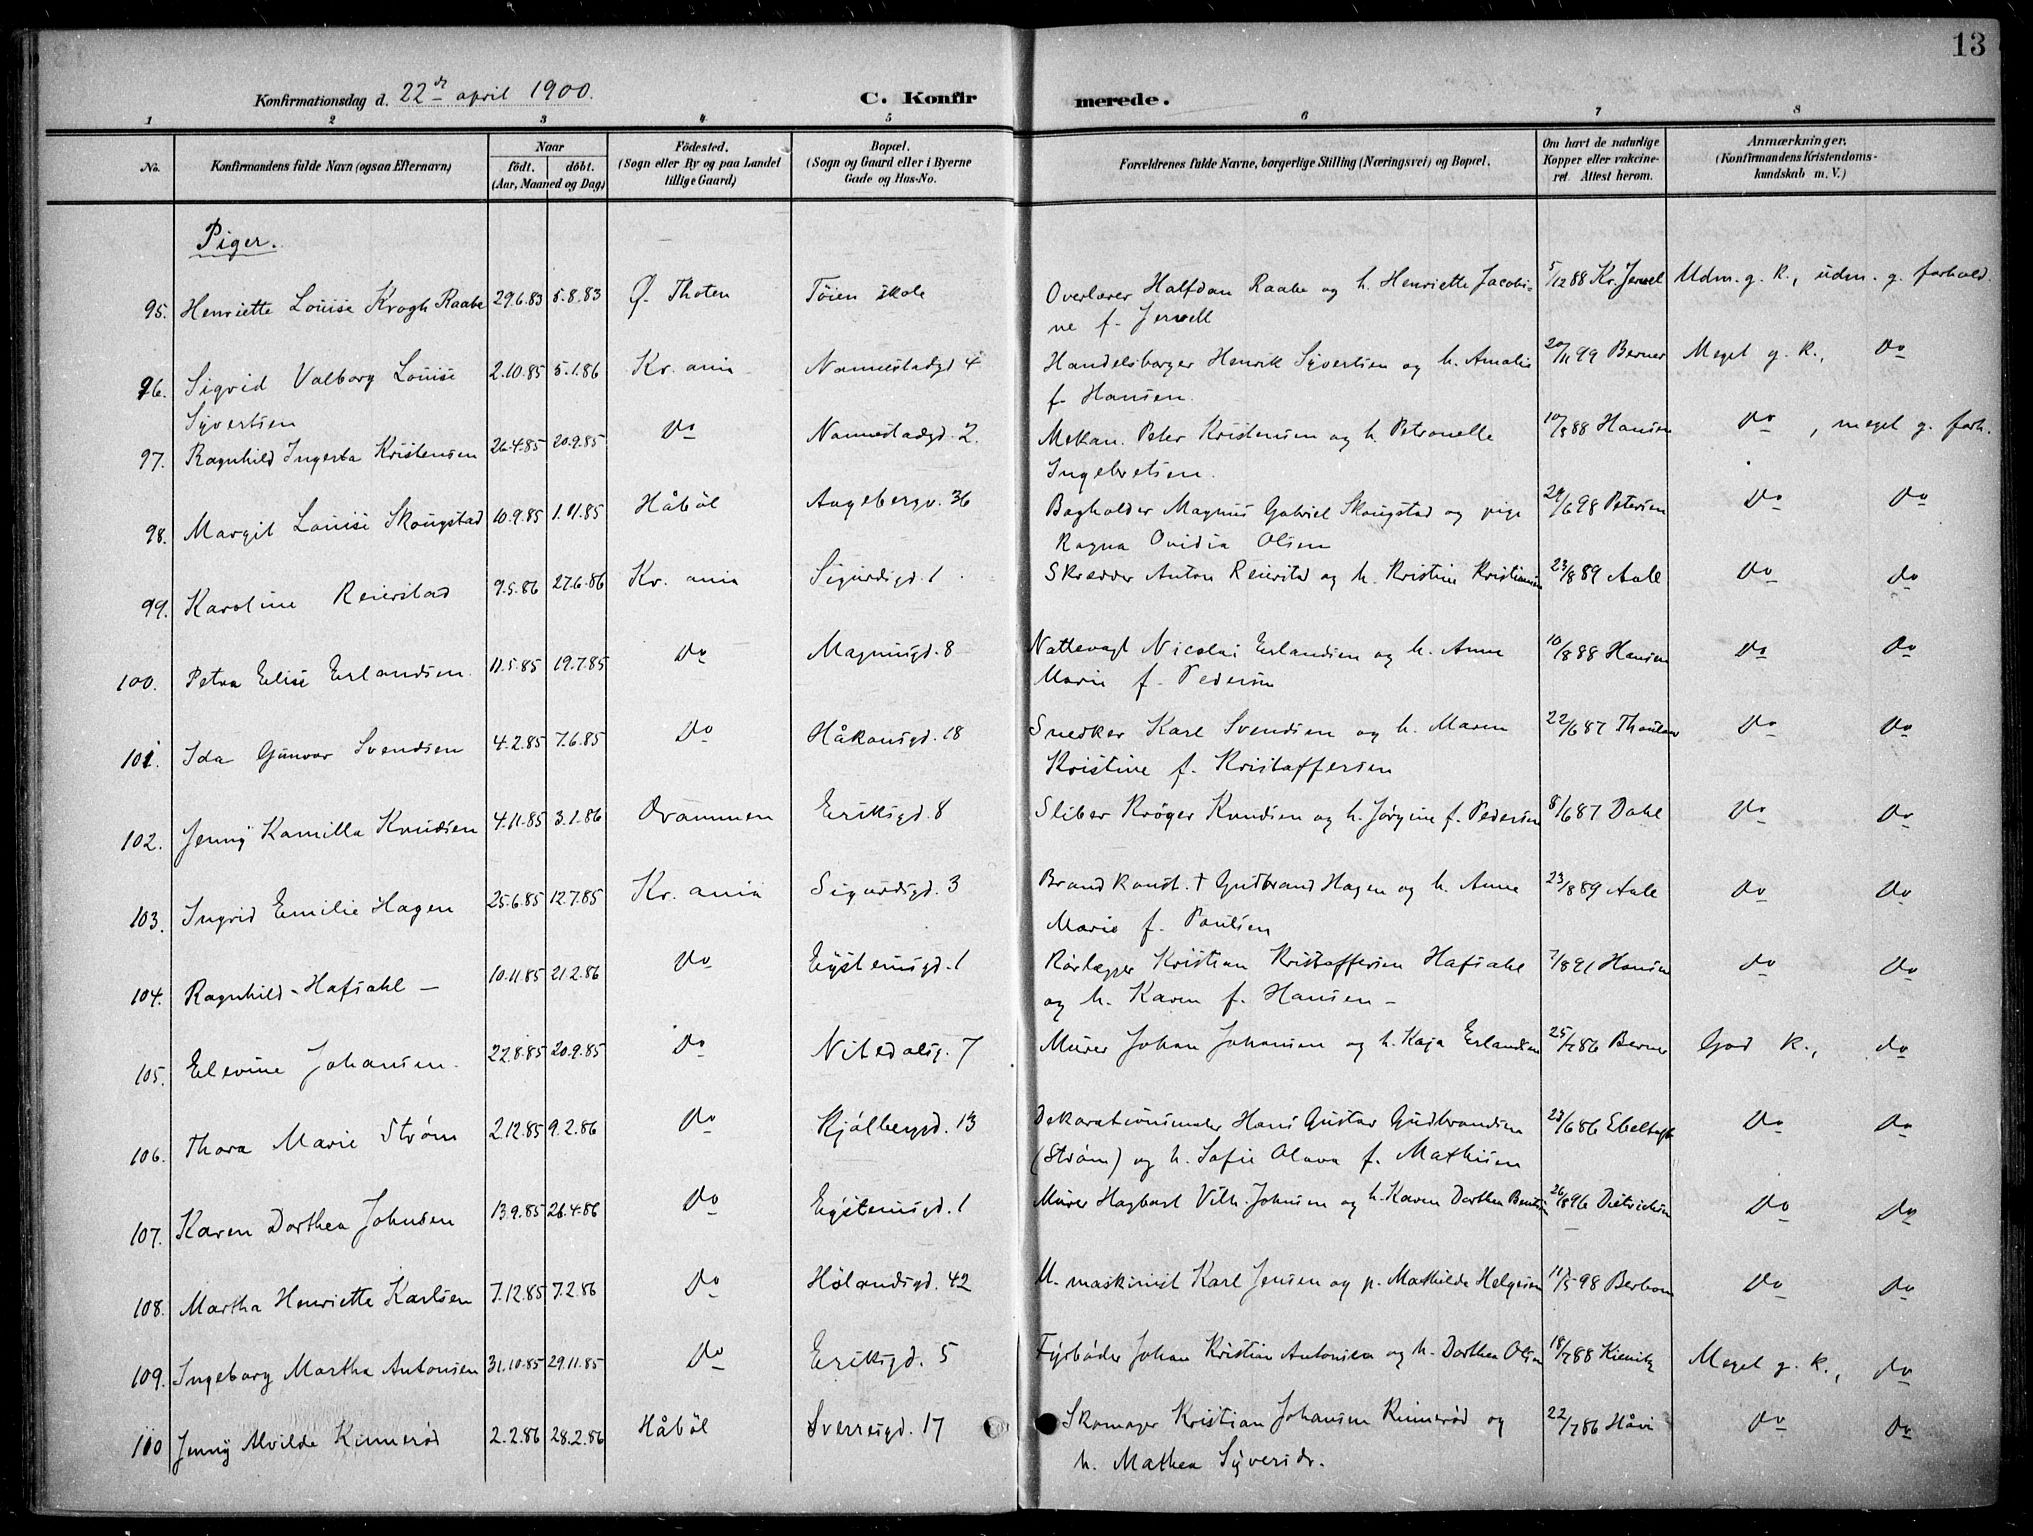 13
Konfirmationsdag d. 22de april 1900. C. Konfirmerede.
1 2 3 4 5 6 7 8
No. Konfirmandens fulde Navn (ogsaa Efternavn) Naar født. døbt. (Aar, Maaned og Dag) Fødested. (Sogn eller By og paa Landet tillige Gaard) Bopæl. (Sogn og Gaard eller i Byerne Gade og Hus-No. Forældrenes fulde Navne, borgerlige Stilling (Næringsvei) og Bopæl. Om havt de naturlige Kopper eller vakcineret. Attest herom. Anmærkninger. (Konfirmandens Kristendomskundskab m. V.)
Piger.
95. Henriette Louise Krogh Raabe 29.6.83 5.8.83 Ø. Thoten Töien skole Overlærer Halfdan Raabe og h. Henriette Jacobi- 5/12 88 Kr. Jervel Udm. g. k., udm. g. forhold.
ne f. Jervell
96. Sigrid Valborg Louise 2.10.85 5.1.86 Kr. ania Nannestadgd 4 Handelsborger Henrik Syvertsen og h. Amalie 20/11 99 Berner Meget g. k., Do
Syvertsen f. Hansen.
97. Ragnhild Ingerta Kristensen 26.4.85 20.9.85 Do Nannestadgd. 2. Mekan. Peter Kristensen og h. Petronelle 10/8 88 Hansen Do , meget g. forh.
Ingebretsen.
98. Margit Louise Skougstad 10.9.85 1.11.85 Håböl Aagebergv. 36 Bogholder Magnus Gabriel Skougstad og pige 29/6 98 Petersen Do Do
Ragna Ovidia Olsen
99. Karoline Reierstad 9.5.86 27.6.86 Kr. ania Sigurdsgd. 1 Skrædder Anton Reierstad og h. Kristine Kristiansen 23/8 89 Aall Do do
100. Petra Elise Erlandsen. 11.5.85 19.7.85 Do Magnusgd. 8 Nattevagt Nicolai Erlandsen og h. Anne 10/8 88 Hansen Do Do
Marie f. Pedersen
101. Ida Gunvor Svendsen 4.2.85 7.6.85 Do Håkonsgd. 18 Snedker Karl Svendsen og h. Maren 22/6 87 Thoulow Do Do
Kristine f. Kristoffersen
102. Jenny Kamilla Knudsen 4.11.85 3.1.86 Drammen Eriksgd. 8 Sliber Kröger Knudsen og h. Jørgine f. Pedersen 8/6 87 Dahl Do Do
103. Ingrid Emilie Hagen 25.6.85 12.7.85 Kr. ania Sigurdsgd. 3 Brandkonst. † Gudbrand Hagen og h. Anne 23/8 89 Aall Do Do
Marie f. Paulsen
104. Ragnhild - Hafsahl - 10.11.85 21.2.86 Do Eystensgd. 1 Rørlægger Kristian Kristoffersen Hafsahl 7/8 91 Hansen Do Do
og h. Karen f. Hansen -
105. Elevine Johansen. 22.8.85 20.9.85 Do Nitedalsg. 7 Murer Johan Johansen og h. Kaja Erlandsen 25/7 86 Berner God k., do
106. Thora Marie Strøm 2.12.85 9.2.86 Do Kjölberggd. 13 Dekorationsmaler Hans Gustav Gudbrandsen 23/6 86 Ebeltoft Do Do
(Strøm) og h. Sofie Olava f. Mathisen
107. Karen Dorthea Johnsen 13.9.85 26.4.86 Do Eystensgd. 1 Murer Hagbart Vilh. Johnsen og h. Karen Dorthea Bentsen 26/8 96 Dietrichson Do Do
108. Martha Henriette Karlsen 7.12.85 7.2.86 Do Hølandsgd. 42 U. maskinist Karl Jensen og p. Mathilde Helgesen 11/5 98 Berbom Do Do
109. Ingeborg Martha Antonsen 31.10.85 29.11.85 Do Eriksgd. 5 Fyrbøder Johan Kristian Antonsen og h. Dorthea Olsen 18/7 88 Meget g. k., do
110 Jenny Alvilde Kinnerød 2.2.86 28.2.86 Håböl Sverresgd. 17 Skomager Kristian Johansen Kinnerød og 22/7 86 Håvi Do Do
h. Mathea Syversdr.